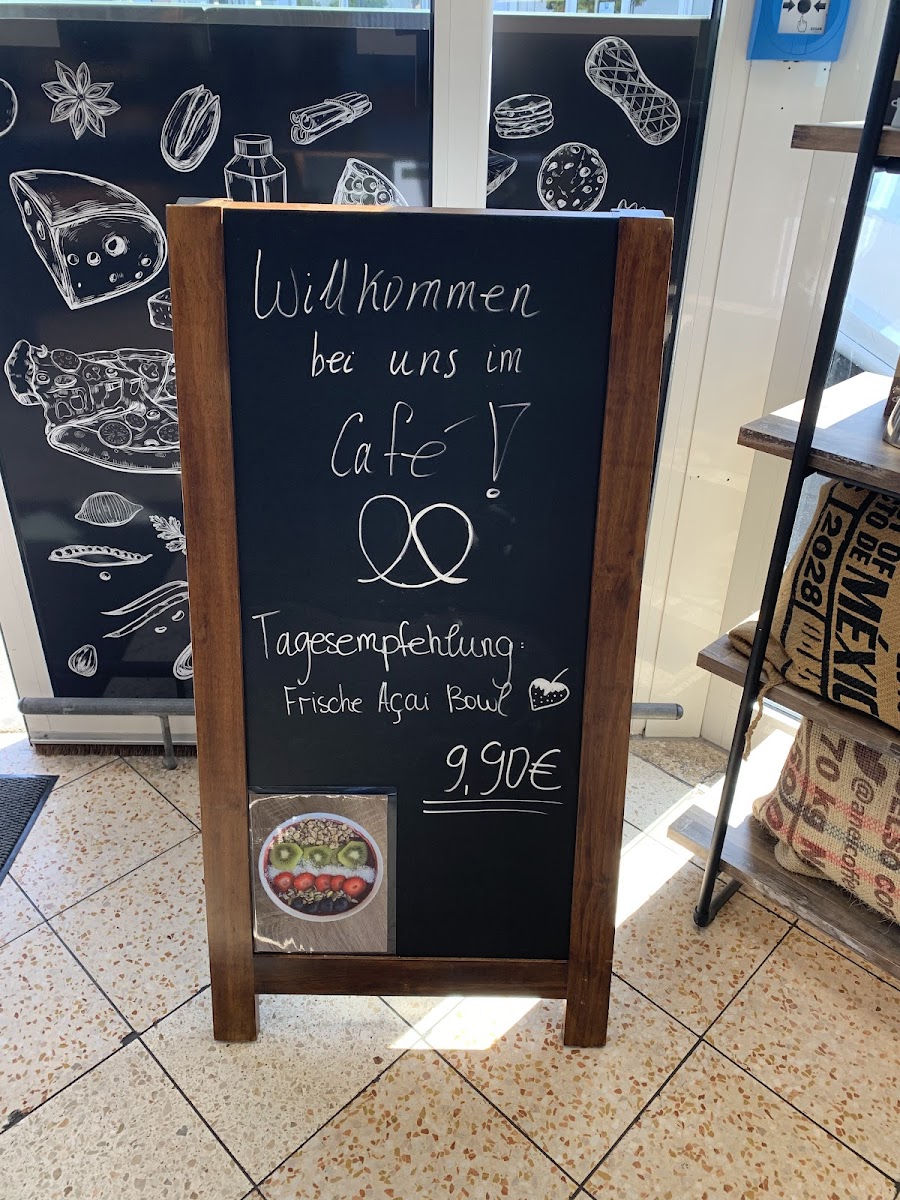 Willkommen
bei uns im
Café!
Tagesempfehlung:
Frische Açai Bowl
9,90€
DE MÉXIC
2028
70 kg N